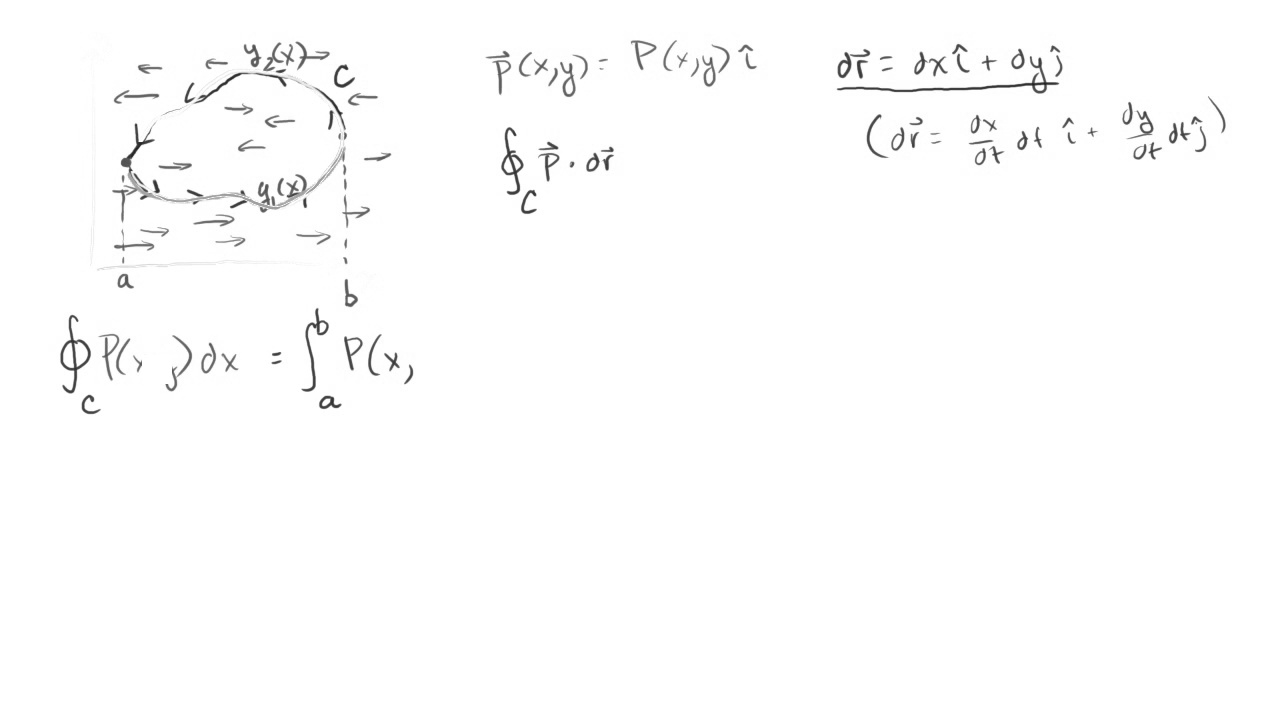 y₂(x) C
y₁(x)
a
b
P⃗(x,y) = P(x,y) î
∮_C P⃗ · dr⃗
dr⃗ = dx î + dy ĵ
(dr⃗ = dx/dt dt î + dy/dt dt ĵ)
∮_C P(x y) dx = ∫_a^b P(x,